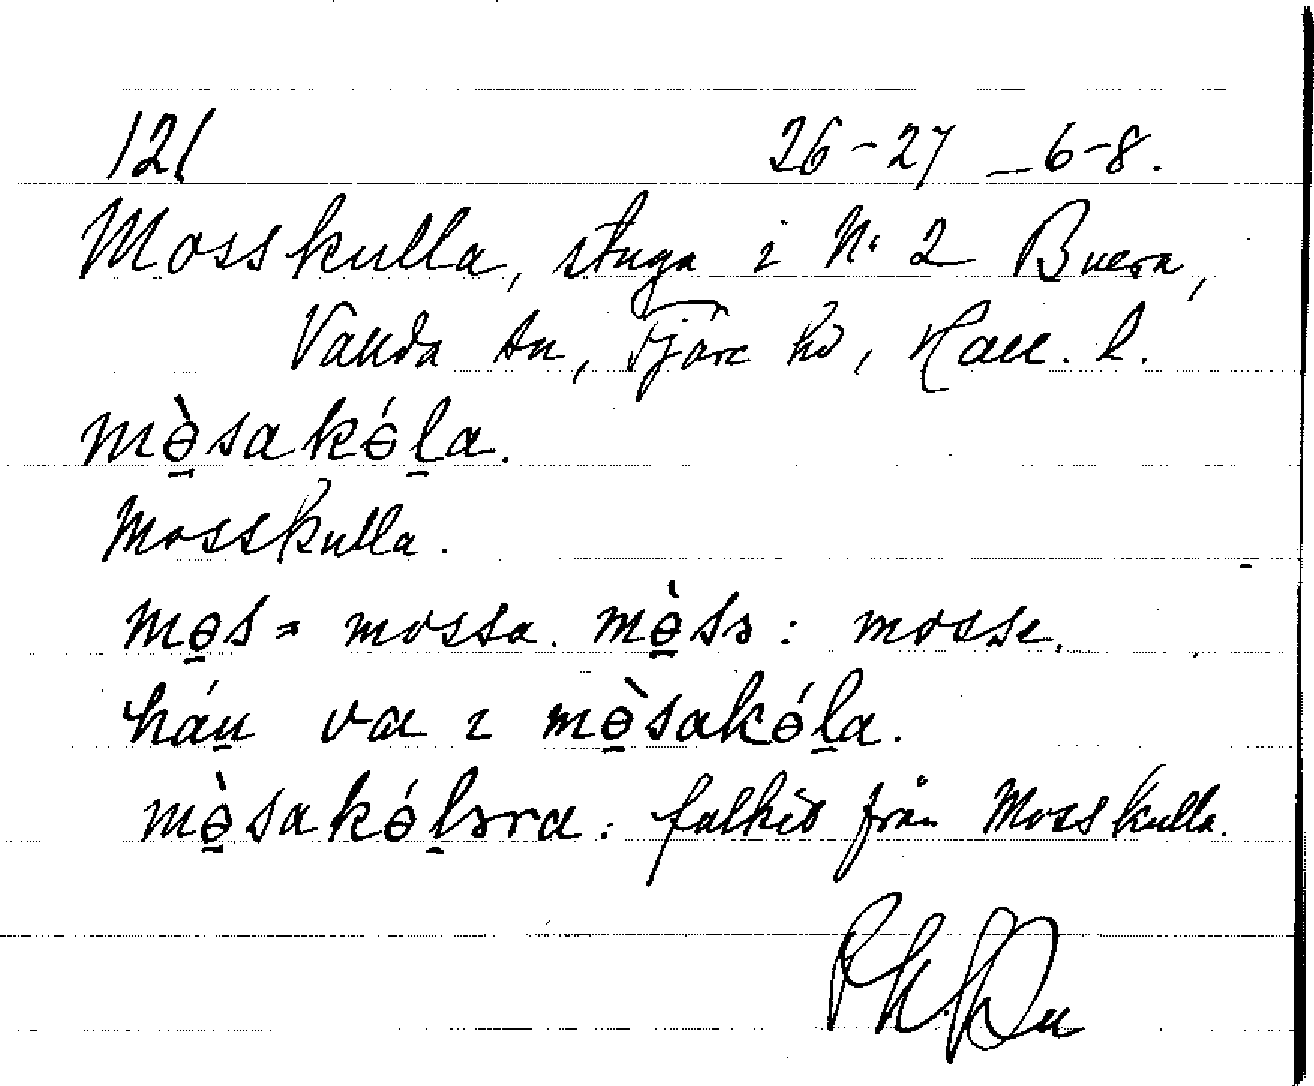 121 26-27 _ 6-8.
Mosskulla, stuga i N: 2 Buera,
Vanda sn, Fjäre hd, Hall. l.
mə̠̀sakə́l̠a.
Mosskulla.
mə̠s = mossa. mə̠̀sɜ : mosse.
hán̠ va ɪ mə̠̀sakə́l̠a.
mə̠̀sakə́l̠ɜra : folket från Mosskulla.